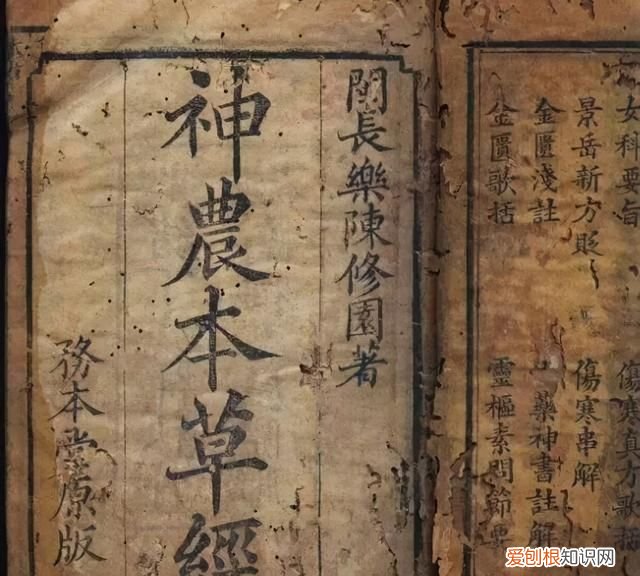 女科要旨 傷寒真方歌括
景岳新方貶 傷寒串解
金匱淺註 藥神書註解
金匱歌括 靈樞素問節要
閩長樂陳修園著
神農本草經
務本堂原版
爱刨根知识网